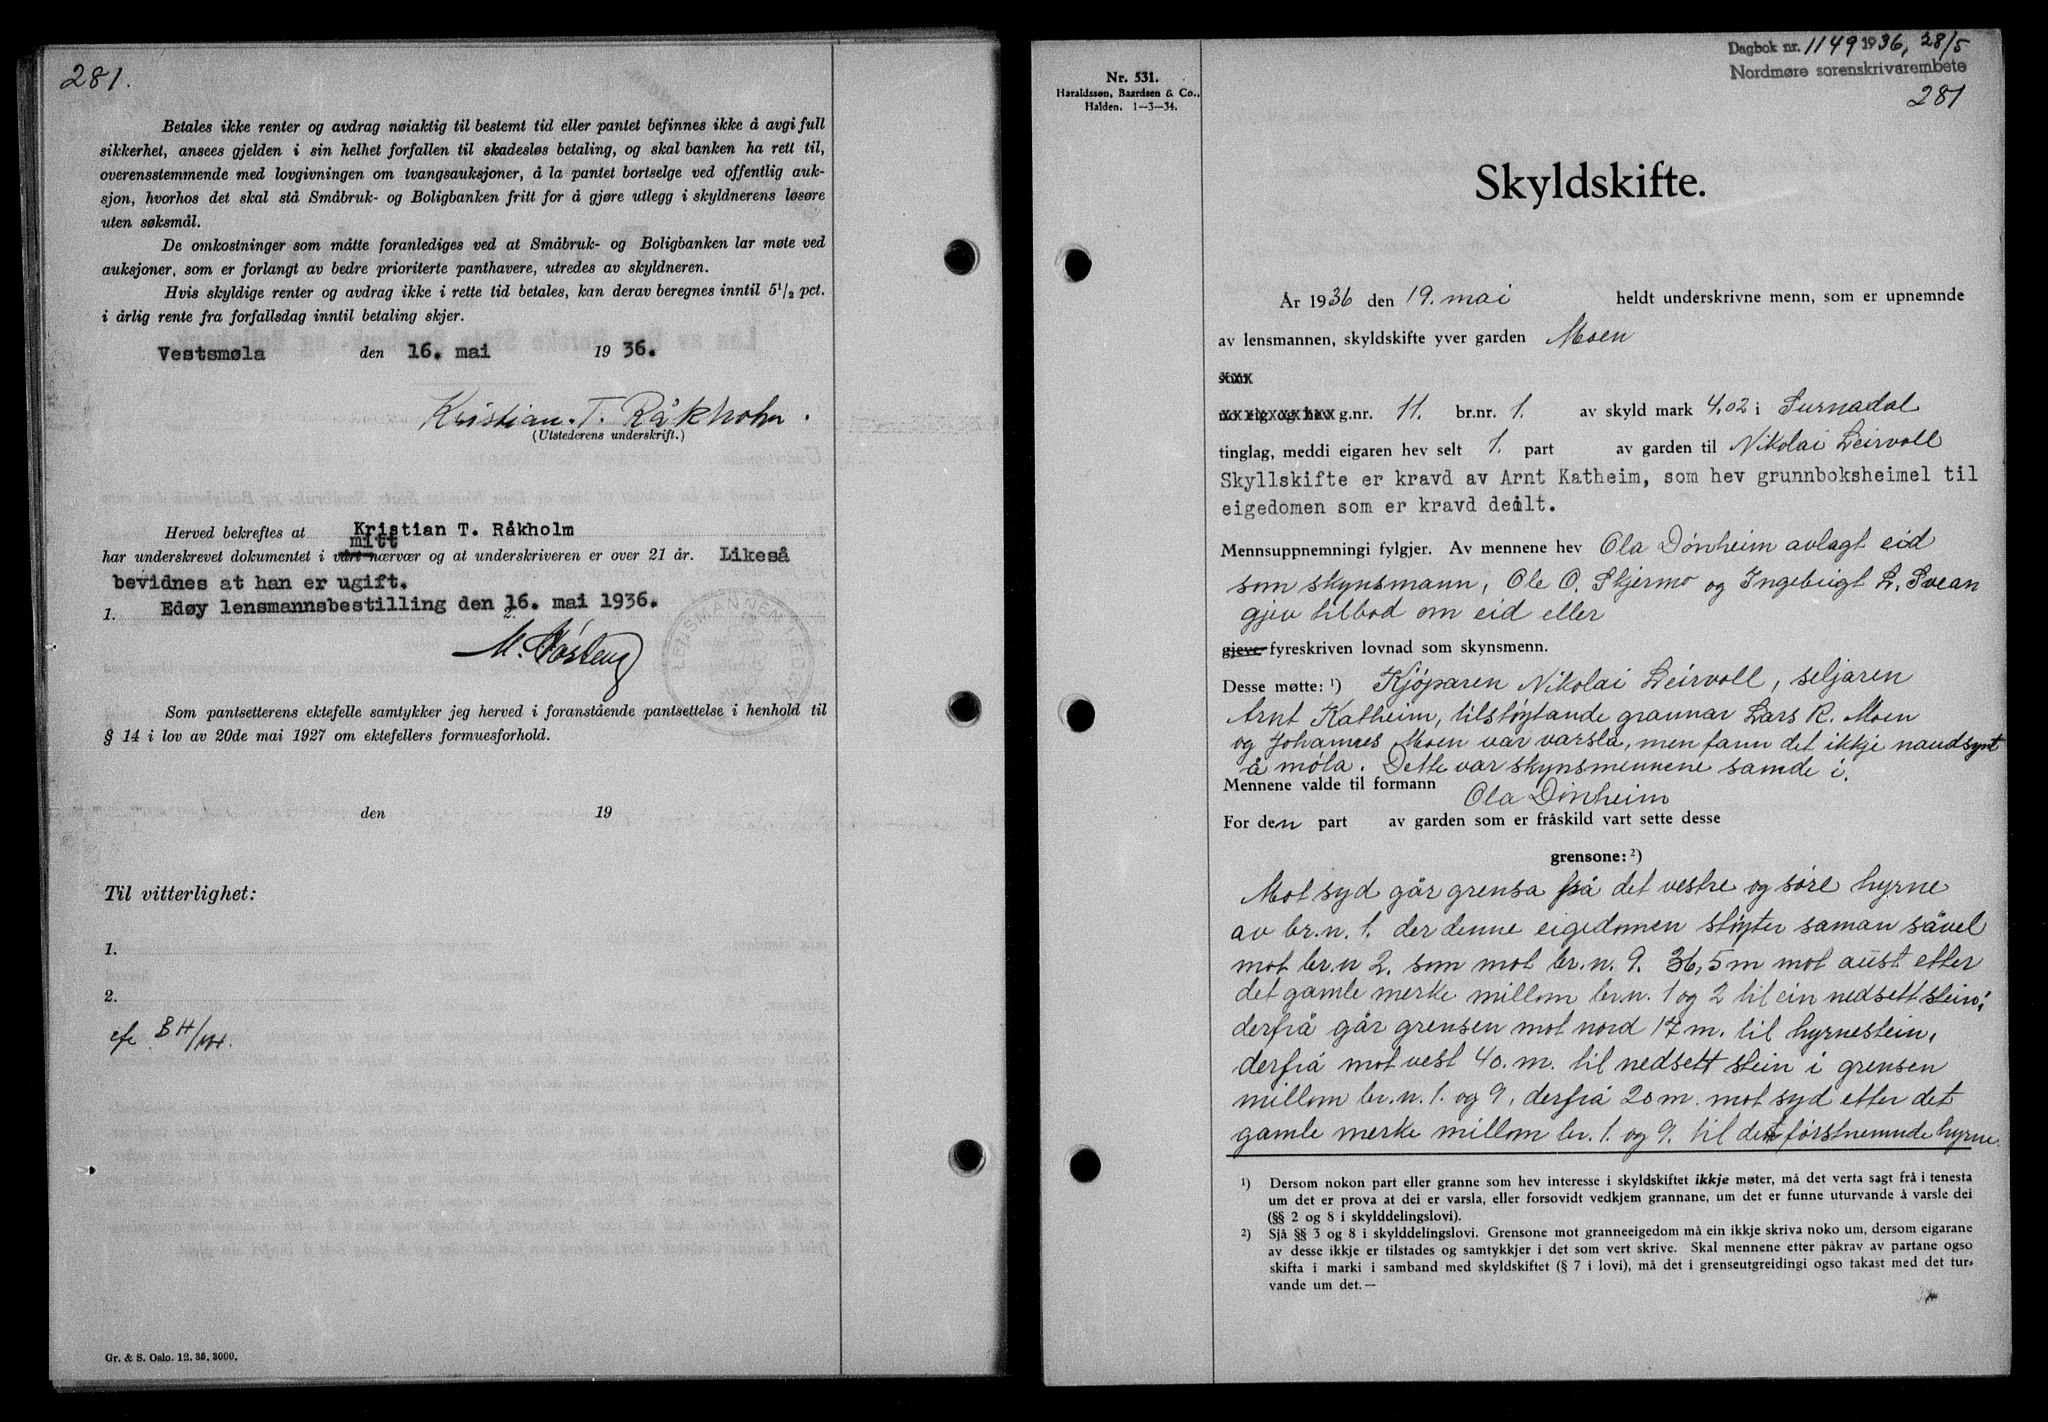 281.
Betales ikke renter og avdrag nøiaktig til bestemt tid eller pantet befinnes ikke å avgi full
sikkerhet, ansees gjelden i sin helhet forfallen til skadesløs betaling, og skal banken ha rett til,
overensstemmende med lovgivningen om tvangsauksjoner, å la pantet bortselge ved offentlig auk-
sjon, hvorhos det skal stå Småbruk- og Boligbanken fritt for å gjøre utlegg i skyldnerens løsøre
uten søksmål.
De omkostninger som måtte foranlediges ved at Småbruk- og Boligbanken lar møte ved
auksjoner, som er forlangt av bedre prioriterte panthavere, utredes av skyldneren.
Hvis skyldige renter og avdrag ikke i rette tid betales, kan derav beregnes inntil 5 1/2 pct.
i årlig rente fra forfallsdag inntil betaling skjer.
Vestsmøla den 16. mai 1936.
Kristian. T. Råkholm.
(Utstederens underskrift.)
Herved bekreftes at Kristian T. Råkholm
mitt
har underskrevet dokumentet i vårt nærvær og at underskriveren er over 21 år. Likeså
bevidnes at han er ugift.
1. Edøy lensmannsbestilling den 16. mai 1936.
2.
LENSMANNEN I EDØY
Som pantsetterens ektefelle samtykker jeg herved i foranstående pantsettelse i henhold til
§ 14 i lov av 20de mai 1927 om ektefellers formuesforhold.
den 19
Til vitterlighet:
1.
2.
Gr. & S. Oslo. 12. 35. 3000.
Dagbok nr. 1149 1936, 28/5
Nordmøre sorenskrivarembete
281
Nr. 531.
Haraldssøn, Baardsen & Co.,
Halden. 1—3—34.
Skyldskifte.
År 1936 den 19. mai heldt underskrivne menn, som er upnemnde
av lensmannen, skyldskifte yver garden Moen
som
no eig og hev g.nr. 11. br.nr. 1. av skyld mark 4,02 i Surnadal
tinglag, meddi eigaren hev selt 1. part av garden til Nikolai Leirvoll
Skyllskifte er kravd av Arnt Katheim, som hev grunnboksheimel til
eigedomen som er kravd deilt.
Mennsuppnemningi fylgjer. Av mennene hev Ola Dønheim avlagt eid
som skynsmann, Ole O. Skjermo og Ingebrigt L. Svean
gjev tilbod om eid eller
gjeve fyreskriven lovnad som skynsmenn.
Desse møtte: ¹) Kjøparen Nikolai Leirvoll, seljaren
Arnt Katheim, tilstøytande grannar Lars R. Moen
og Johannes Moen var varsla, men fann det ikkje naudsynt
å møta. Dette var skynsmennene samde i.
Mennene valde til formann Ola Dønheim
For den part av garden som er fråskild vart sette desse
grensone: ²)
Mot syd går grensa frå det vestre og søre hyrne
av br.n. 1. der denne eigedomen støyter saman såvel
mot br.n 2. som mot br.n. 9. 36,5 m mot aust etter
det gamle merke millom br.n. 1 og 2 til ein nedsett stein;
derfrå går grensen mot nord 17 m. til hyrnestein,
derfrå mot vest 40. m. til nedsett stein i grensen
millom br.n. 1. og 9, derfrå 20 m. mot syd etter det
gamle merke millom br. 1. og 9. til det førstnemnde hyrne.
¹) Dersom nokon part eller granne som hev interesse i skyldskiftet ikkje møter, må det verta sagt frå i tenesta
um det er prova at dei er varsla, eller forsovidt vedkjem grannane, um det er funne uturvande å varsle dei
(§§ 2 og 8 i skylddelingslovi).
²) Sjå §§ 3 og 8 i skylddelingslovi. Grensone mot granneeigedom må ein ikkje skriva noko um, dersom eigarane
av desse ikkje er tilstades og samtykkjer i det som vert skrive. Skal mennene etter påkrav av partane ogso
skifta i marki i samband med skyldskiftet (§ 7 i lovi), må det i grenseutgreidingi ogso takast med det tur-
vande um det.—